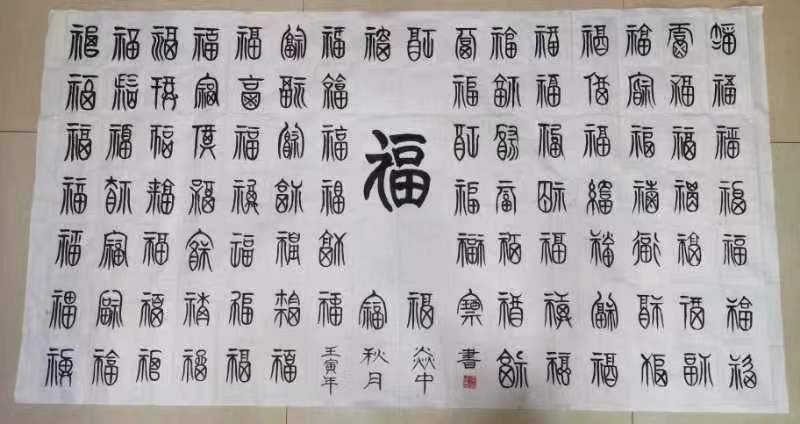 福福福福福福福福福福福福福福福福
福福福福福福福福福福福福福福
福福福福福福福福福福福福福福
福
福福福福福福福福福福福福福福
福福福福福福福福福福福福福福
福福福福福福福福福福福福福福福福
福福福福福福
壬寅年
秋月
焱中
書
福福福福福福